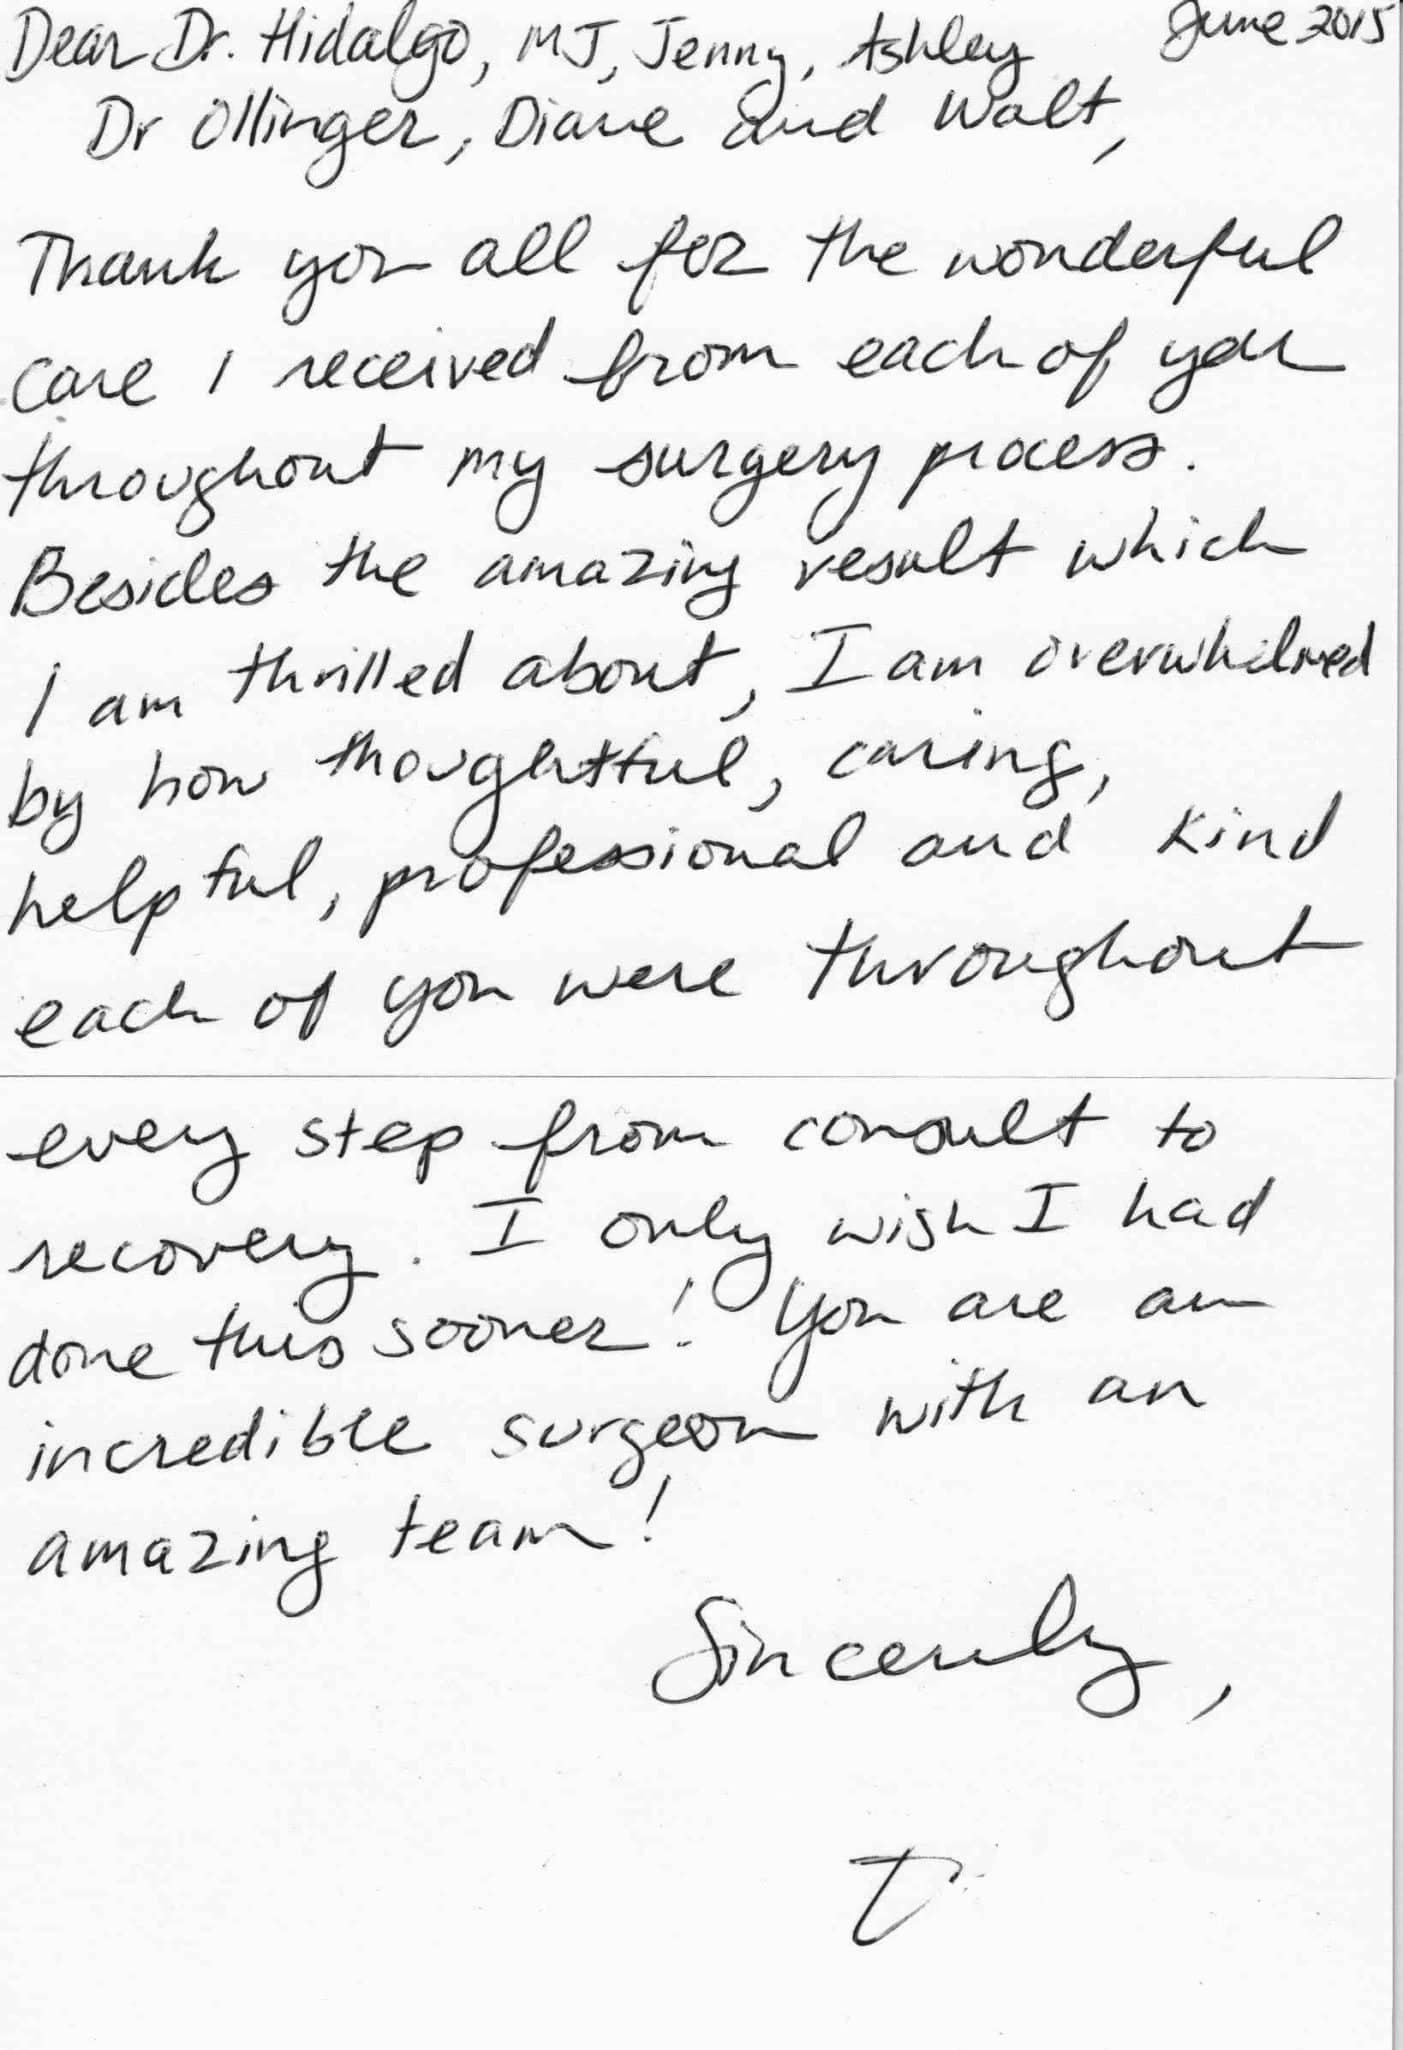 Dear Dr. Hidalgo, MJ, Jenny, Ashley June 2015
Dr Ollinger, Diane and Walt,
Thank you all for the wonderful
care I received from each of you
throughout my surgery process.
Besides the amazing result which
I am thrilled about, I am overwhelmed
by how thoughtful, caring,
helpful, professional and kind
each of you were throughout
every step from consult to
recovery. I only wish I had
done this sooner! You are an
incredible surgeon with an
amazing team!
Sincerely,